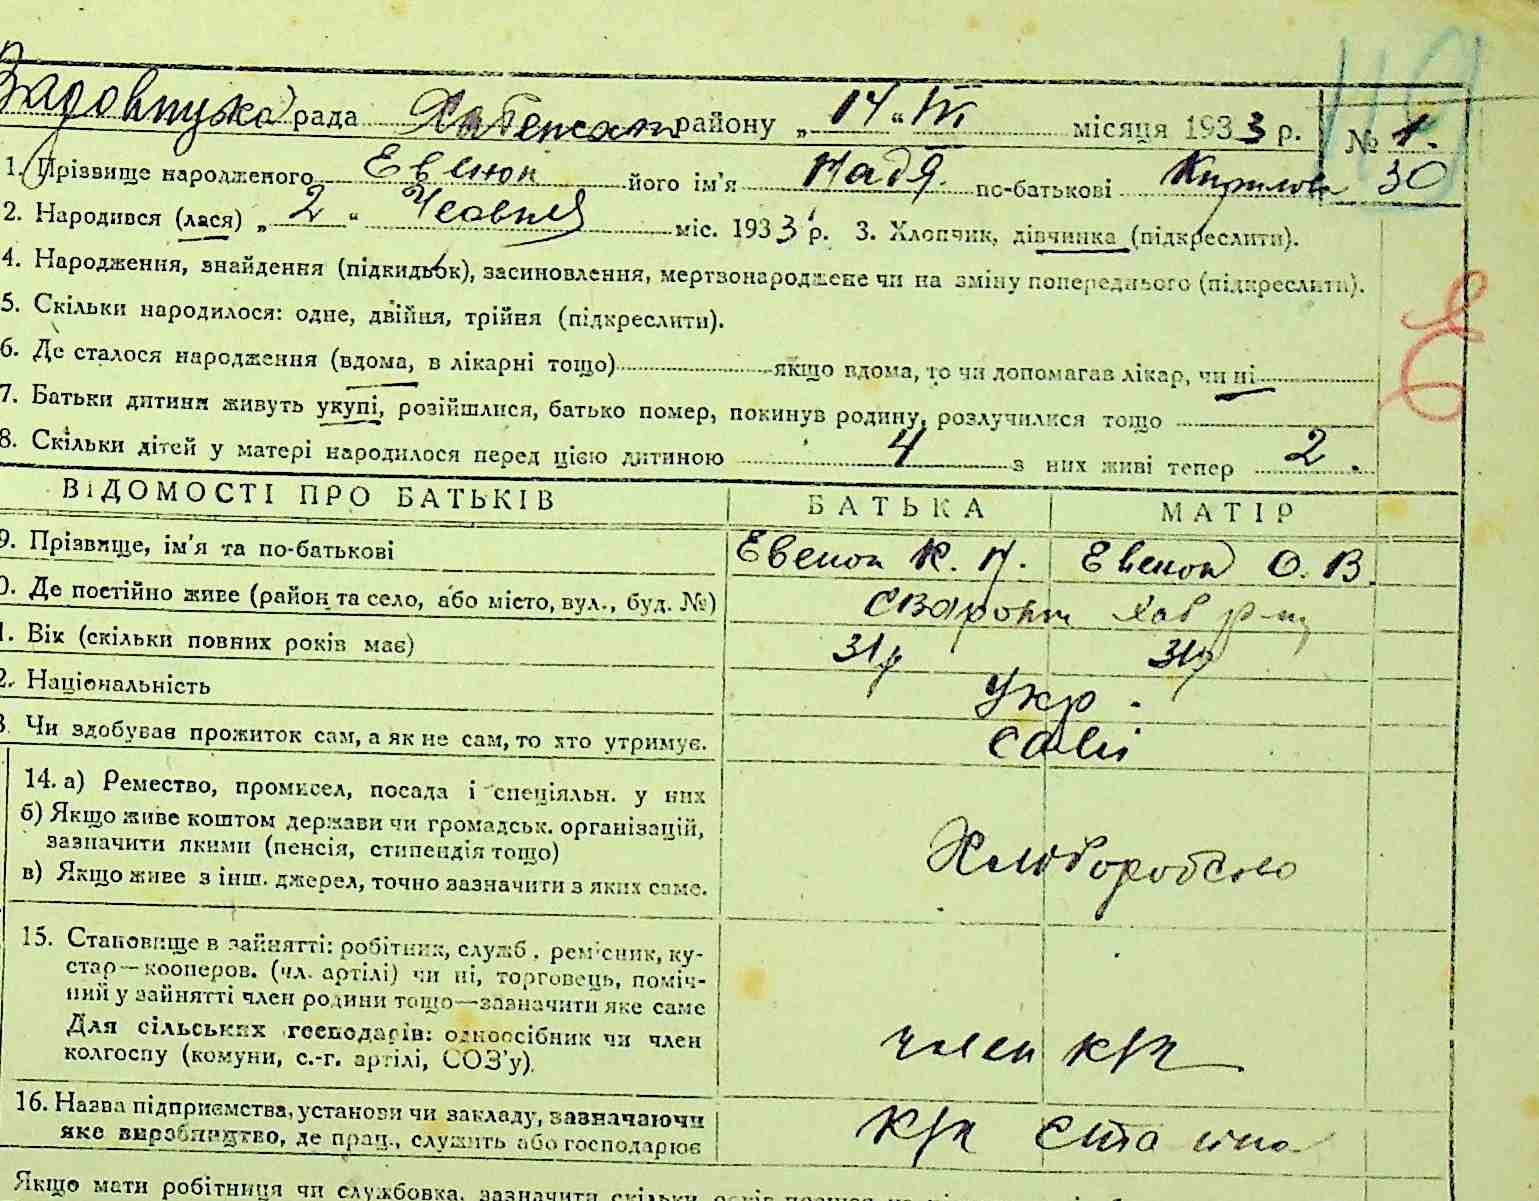 рада района „ 14 “ VI місяця 1933 р. № 1.
1. Прізвище народженого Евенок його ім'я Надя по-батькові Кирилова 30
2. Народився (лася) „ 2 “ Червня міс. 1933 р. 3. Хлопчик, дівчинка (підкреслити).
4. Народження, знайдення (підкидьок), засиновлення, мертвонароджене чи на зміну попереднього (підкреслити).
5. Скільки народилося: одне, двійня, трійня (підкреслити).
6. Де сталося народження (вдома, в лікарні тощо) якщо вдома, то чи допомагав лікар, чи ні
7. Батьки дитини живуть укупі, розійшлися, батько помер, покинув родину, розлучилися тощо
8. Скільки дітей у матері народилося перед цією дитиною 4 з них живі тепер 2.
ВІДОМОСТІ ПРО БАТЬКІВ БАТЬКА МАТІР
9. Прізвище, ім'я та по-батькові Евенок К. П. Евенок О. В.
0. Де постійно живе (район та село, або місто, вул., буд. №) Хав р-ну
1. Вік (скільки повних років має) 31р 31р
2. Національність Укр.
3. Чи здобував прожиток сам, а як не сам, то хто утримує. самі
14. а) Ремество, промисел, посада і спеціяльн. у них
б) Якщо живе коштом держави чи громадськ. організацій,
зазначити якими (пенсія, стипендія тощо) Хліборобство
в) Якщо живе з інш. джерел, точно зазначити з яких саме.
15. Становище в зайнятті: робітник, служб., рем'сник, ку-
стар—кооперов. (чл. артілі) чи ні, торговець, поміч-
ний у зайнятті член родини тощо—зазначити яке саме
Для сільських господарів: одноосібник чи член
колгоспу (комуни, с.-г. артілі, СОЗ'у). член к/г
16. Назва підприємства, установи чи закладу, зазначаючи
яке виробництво, де прац., служить або господарює к/г Сталіна
Якщо мати робітниця чи службовка, зазначити скільки